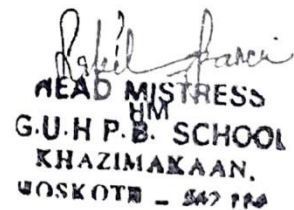 HEAD MISTRESS
HM
G.U.H P.B. SCHOOL
KHAZIMAKAAN.
HOSKOTE -